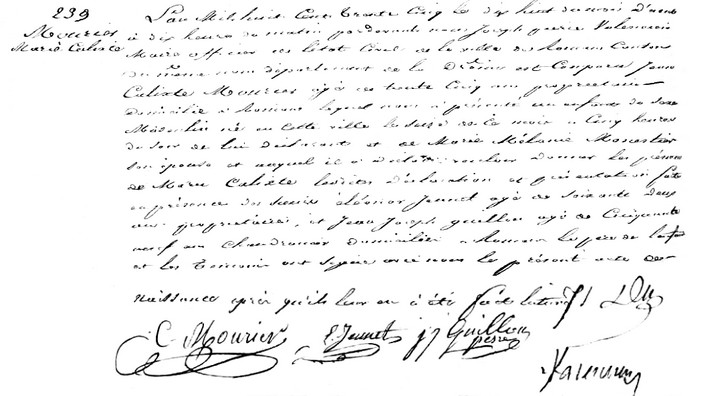 239
Mourier
Marie Calixte
L'an Mil huit Cent trente Cinq le dix huit du mois d'aout
à dix heures du matin pardevant nous Joseph pierre Valencien
Maire officier de l'état Civil de la ville de Romans Canton
du même nom département de la Drôme est Comparu Jean
Calixte Mourier agé de trente Cinq ans propriétaire
domicilié à Romans lequel nous a présenté un enfant du sexe
Masculin né en cette ville le seize de ce mois à Cinq heures
du soir de lui déclarant et de Marie Mélanie Monestier
son épouse et auquel il a déclaré vouloir donner les prénoms
de Marie Calixte lesdites déclaration et présentation faites
en présence des sieurs éléonor Jeunet agé de soixante deux
ans propriétaire, et Jean Joseph guillon agé de Cinquante
neuf ans Chaudronnier domiciliés à Romans le père de l'enfant
et les témoins ont signé avec nous le présent acte de
Naissance après qu'il leur en a été fait lecture
C Mourier E Jeunet JJ Guillon
père